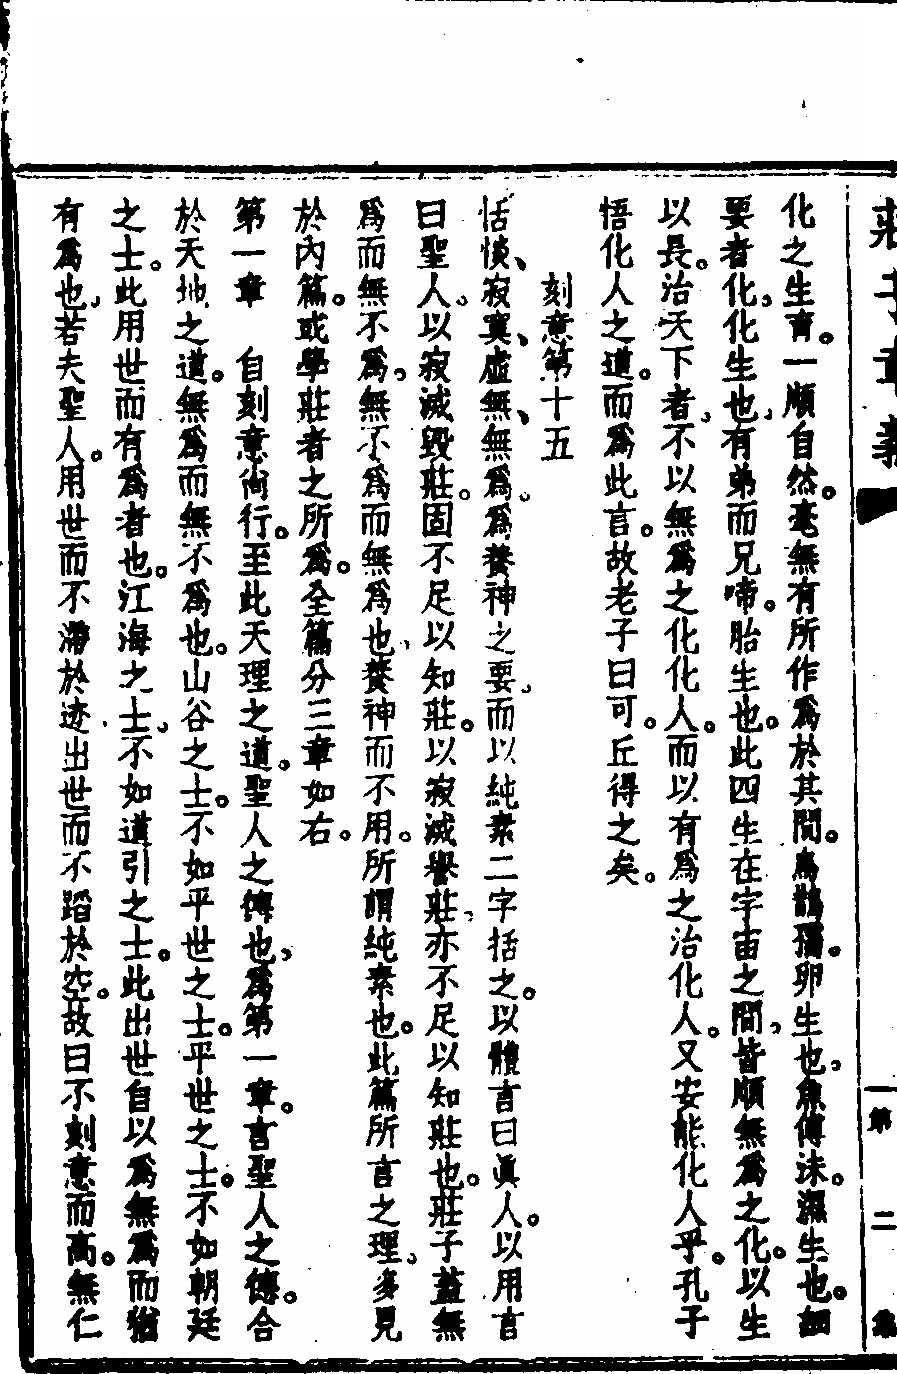 莊子章義
第二集
化之生育。一順自然。毫無有所作爲於其間。烏鵲孺。卵生也，魚傅沫。濕生也。細
要者化，化生也，有弟而兄啼。胎生也。此四生在宇宙之間，皆順無爲之化。以生
以長。治天下者，不以無爲之化化人。而以有爲之治化人。又安能化人乎。孔子
悟化人之道。而爲此言。故老子曰可。丘得之矣。
刻意第十五
恬惔、寂寞、虛無、無爲。爲養神之要，而以純素二字括之。以體言曰眞人。以用言
曰聖人，以寂滅毀莊。固不足以知莊。以寂滅譽莊，亦不足以知莊也。莊子蓋無
爲而無不爲，無不爲而無爲也，養神而不用。所謂純素也。此篇所言之理，多見
於內篇。或學莊者之所爲。全篇分三章如右。
第一章　自刻意尙行。至此天理之道。聖人之德也，爲第一章。言聖人之德。合
於天地之道。無爲而無不爲也。山谷之士。不如平世之士。平世之士。不如朝廷
之士。此用世而有爲者也。江海之士，不如道引之士。此出世自以爲無爲而猶
有爲也，若夫聖人。用世而不滯於迹出世而不蹈於空。故曰不刻意而高。無仁